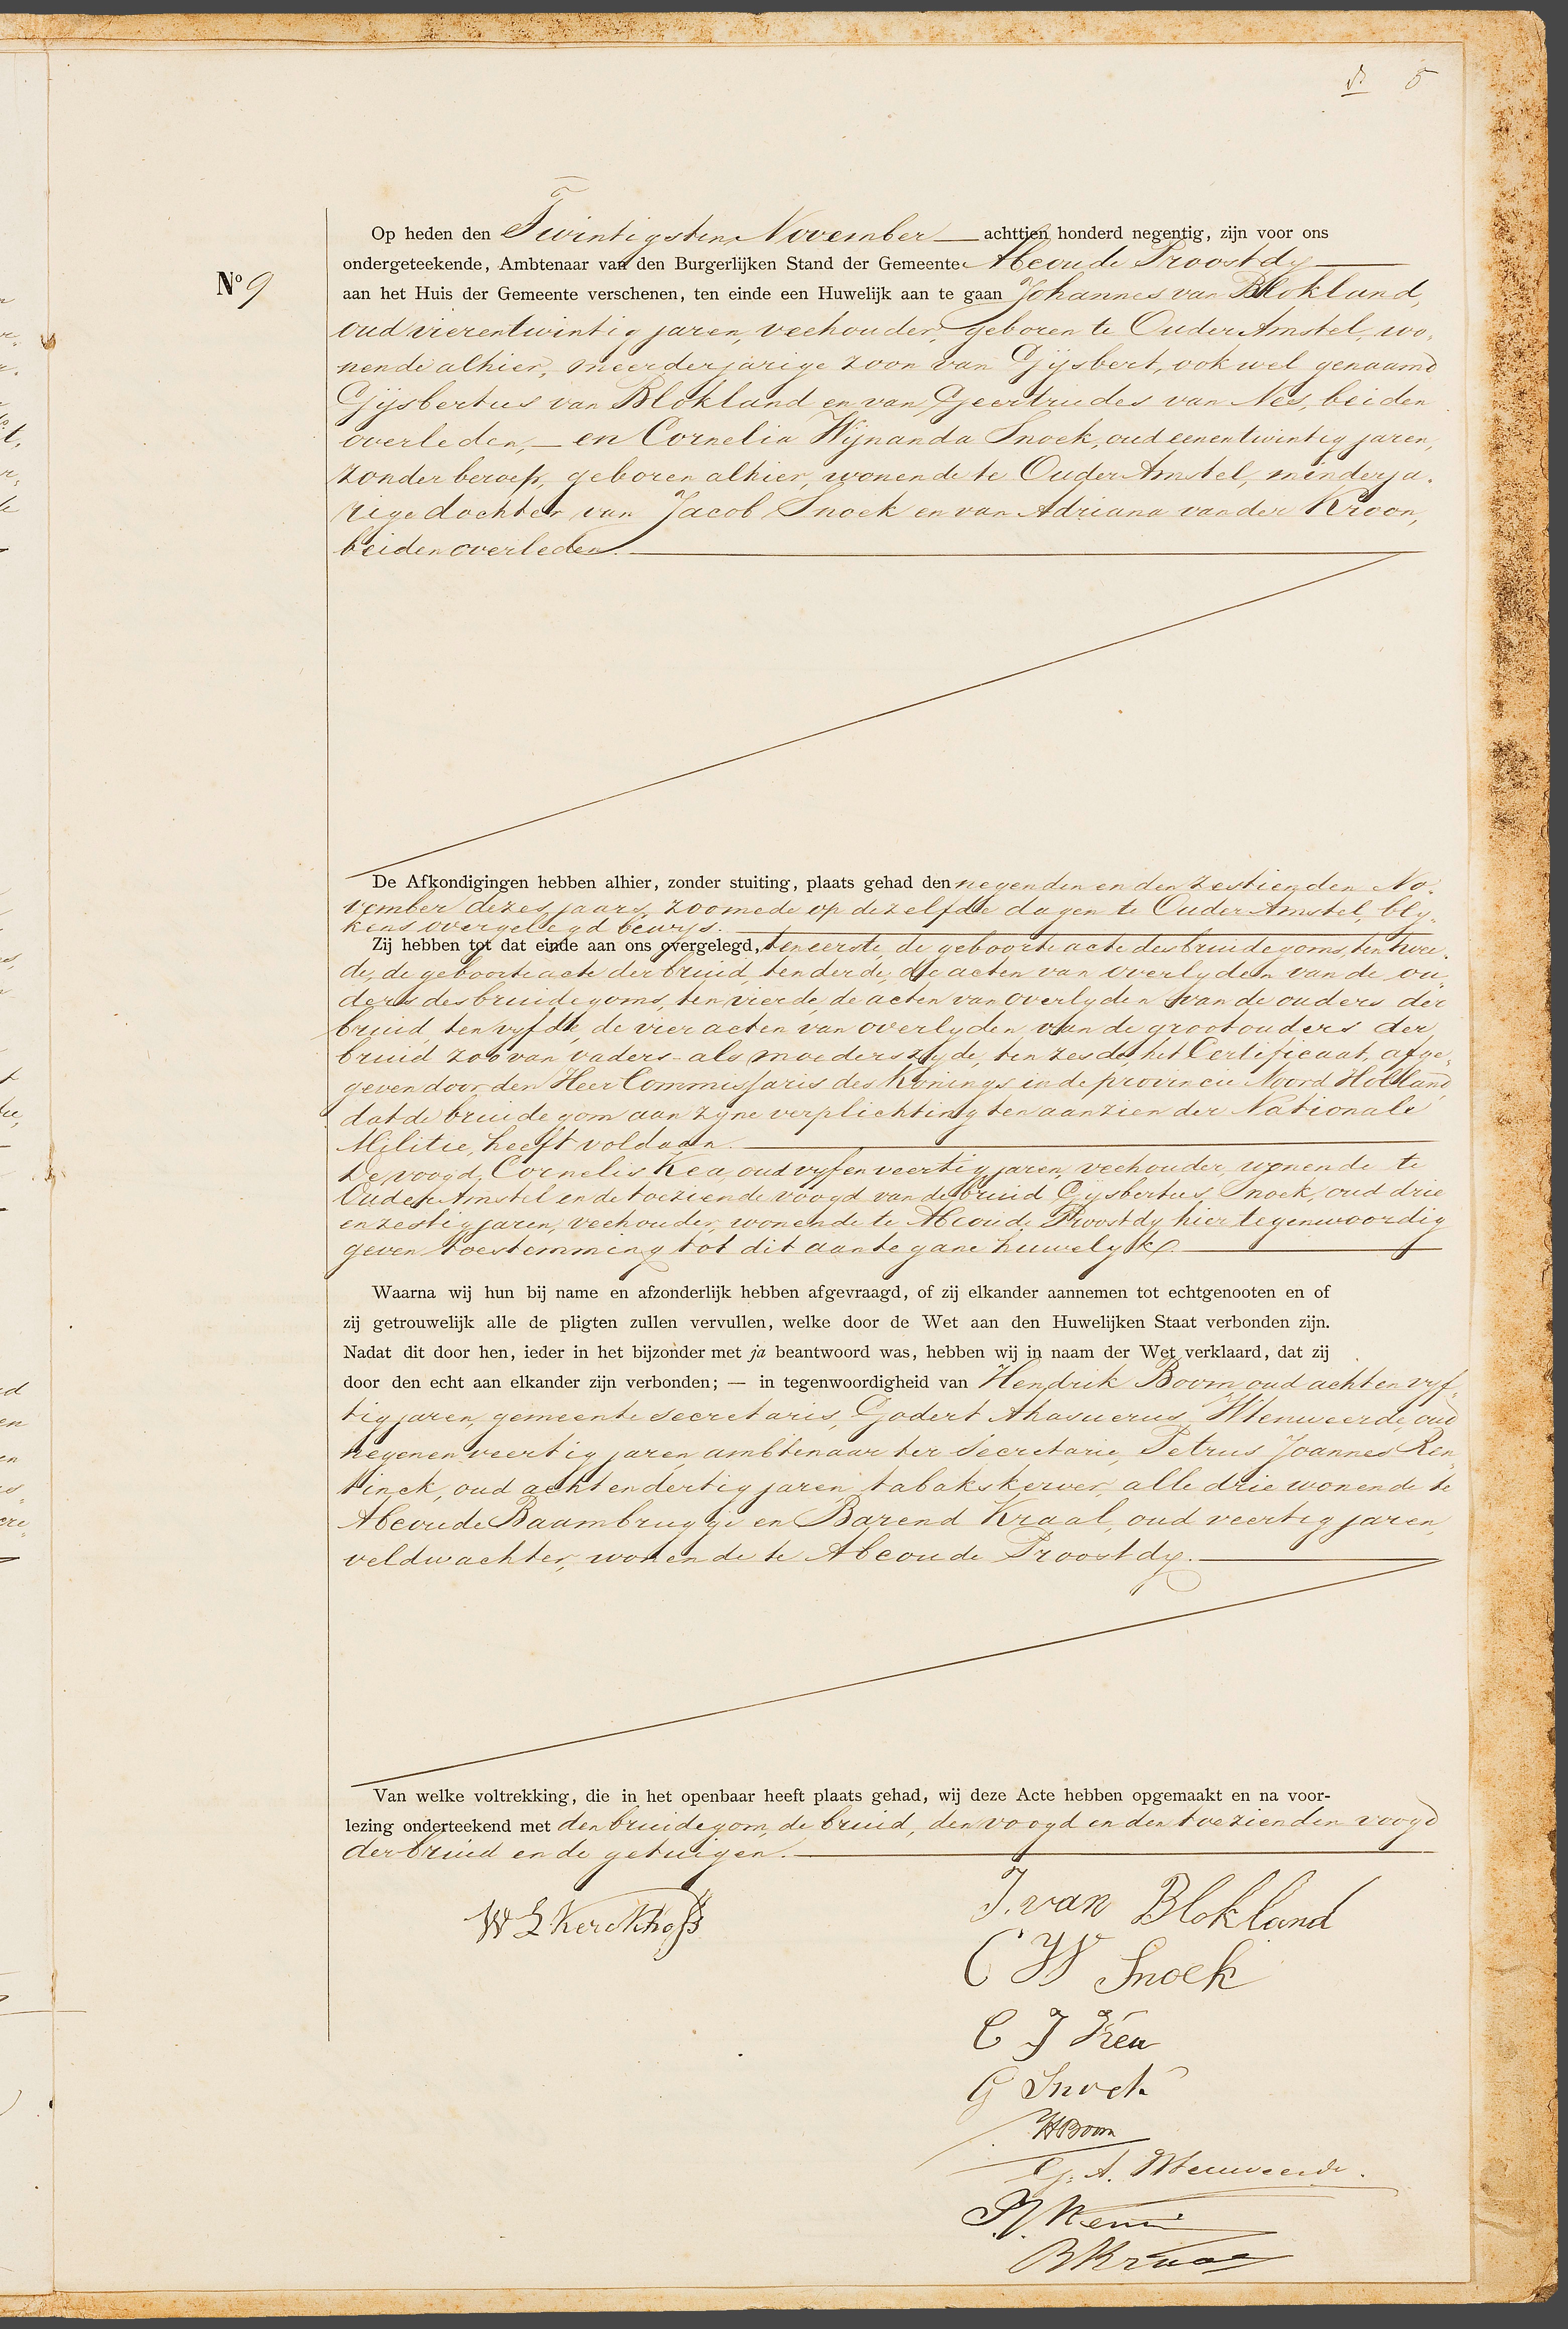 5
Op heden den Twintigsten November achttien honderd negentig, zijn voor ons
ondergeteekende, Ambtenaar van den Burgerlijken Stand der Gemeente Abcoude Proostdy
No 9
aan het Huis der Gemeente verschenen, ten einde een Huwelijk aan te gaan Johannes van Blokland,
oud vierentwintig jaren, veehouder, geboren te Ouder Amstel, wo-
nende alhier, meerderjarige zoon van Gijsbert, ook wel genaamd
Gijsbertus van Blokland en van Geertrudes van Nes, beiden
overleden, — en Cornelia Wijnanda Snoek, oud eenentwintig jaren,
zonder beroep, geboren alhier, wonende te Ouder Amstel, minderja-
rige dochter van Jacob Snoek en van Adriana van der Kroon,
beiden overleden.
De Afkondigingen hebben alhier, zonder stuiting, plaats gehad den negenden en den zestienden No-
vember dezes jaars, zoomede op dezelfde dagen te Ouder Amstel, bly-
kens overgelegd bewys.
Zij hebben tot dat einde aan ons overgelegd, ten eerste, de geboorteacte des bruidegoms, ten twee-
de, de geboorteacte der bruid, ten derde, de acten van overlyden van de ou-
ders des bruidegoms, ten vierde, de acten van overlyden van de ouders der
bruid, ten vyfde, de vier acten van overlyden van de grootouders der
bruid zoo van vaders- als moederszyde, ten zesde, het Certificaat, afge-
geven door den Heer Commissaris des Konings in de provincie Noord Holland
dat de bruidegom aan zyne verplichting ten aanzien der Nationale
Militie, heeft voldaan.
De voogd, Cornelis Kea, oud vyfenveertig jaren, veehouder, wonende te
Ouder Amstel en de toeziende voogd van de bruid Gysbertus Snoek, oud drie
en zestig jaren, veehouder, wonende te Abcoude Proostdy hier tegenwoordig
geven toestemming tot dit aantegane huwelyk.
Waarna wij hun bij name en afzonderlijk hebben afgevraagd, of zij elkander aannemen tot echtgenooten en of
zij getrouwelijk alle de pligten zullen vervullen, welke door de Wet aan den Huwelijken Staat verbonden zijn.
Nadat dit door hen, ieder in het bijzonder met ja beantwoord was, hebben wij in naam der Wet verklaard, dat zij
door den echt aan elkander zijn verbonden; — in tegenwoordigheid van Hendrik Boom oud achtenvyf-
tig jaren, gemeente secretaris, Godert Ahasuerus Uttenweerde, oud
negenenveertig jaren ambtenaar ter secretarie, Petrus Joannes Ren-
tinck, oud achtendertig jaren, tabakskerver, alle drie wonende te
Abcoude Baambrugge en Barend Kraal, oud veertig jaren,
veldwachter, wonende te Abcoude Proostdy.
Van welke voltrekking, die in het openbaar heeft plaats gehad, wij deze Acte hebben opgemaakt en na voor-
lezing onderteekend met den bruidegom, de bruid, den voogd en den toezienden voogd
der bruid en de getuigen.
J. van Blokland
C W Snoek
C J Kea
G Snoek
H Boom
B Kraal